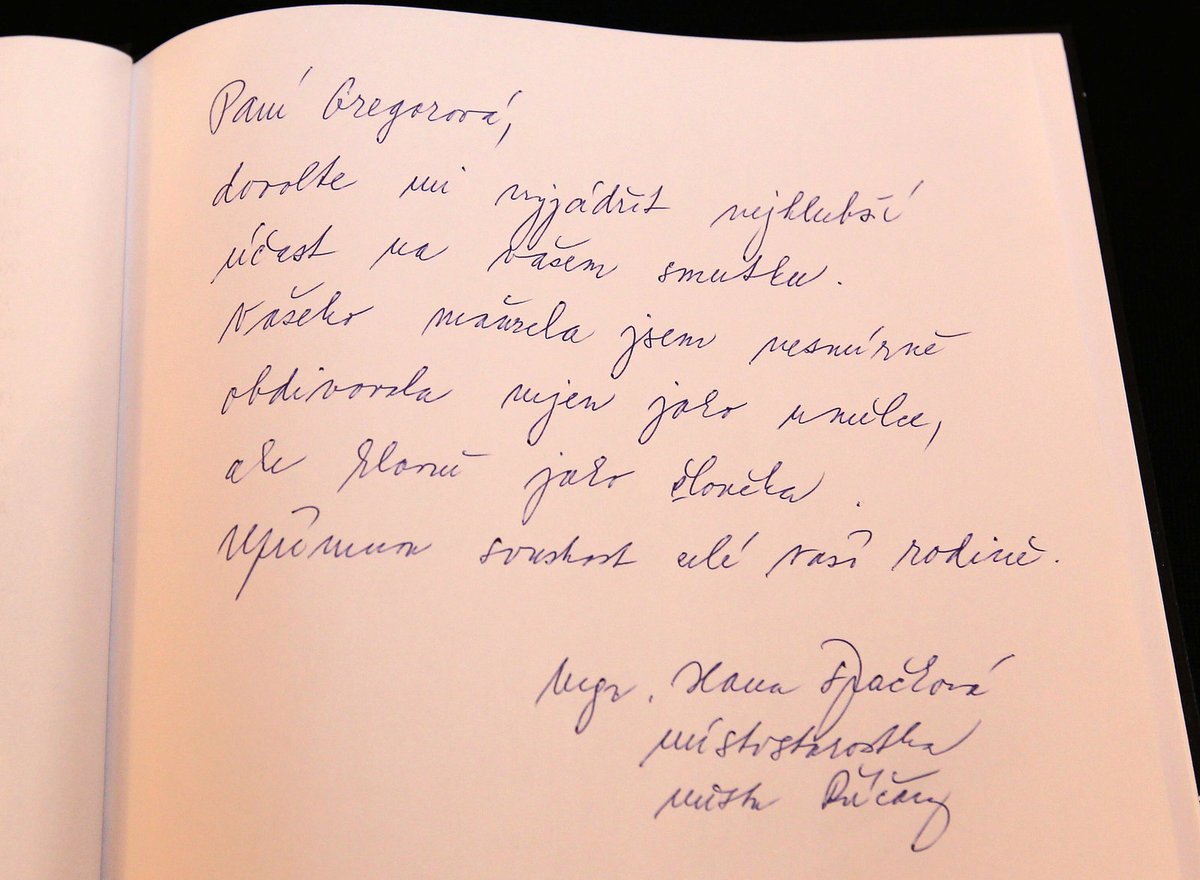 Paní Gregorová,
dovolte mi vyjádřit nejhlubší
účast na vašem smutku.
Vašeho manžela jsem nesmírně
obdivovala nejen jako umělce,
ale hlavně jako člověka.
Upřímnou soustrast celé vaší rodině.
Mgr. Hana Špačková
místostarostka
města Říčany